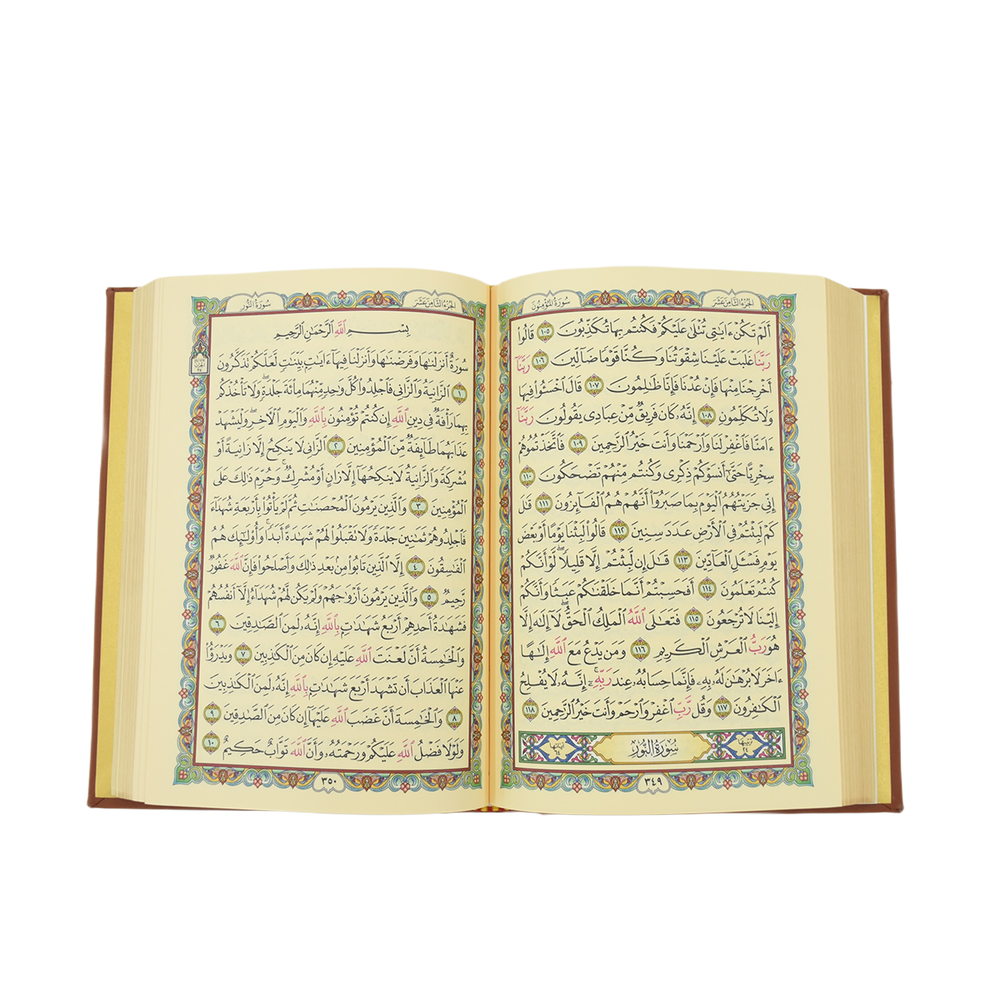 سورة المؤمنون
الجزء الثامن عشر
أَلَمْ تَكُنْ ءَايَٰتِى تُتْلَىٰ عَلَيْكُمْ فَكُنتُم بِهَا تُكَذِّبُونَ ١٠٥ قَالُوا۟
رَبَّنَا غَلَبَتْ عَلَيْنَا شِقْوَتُنَا وَكُنَّا قَوْمًا ضَآلِّينَ ١٠٦ رَبَّنَآ
أَخْرِجْنَا مِنْهَا فَإِنْ عُدْنَا فَإِنَّا ظَٰلِمُونَ ١٠٧ قَالَ ٱخْسَـُٔوا۟ فِيهَا
وَلَا تُكَلِّمُونِ ١٠٨ إِنَّهُۥ كَانَ فَرِيقٌ مِّنْ عِبَادِى يَقُولُونَ رَبَّنَآ
ءَامَنَّا فَٱغْفِرْ لَنَا وَٱرْحَمْنَا وَأَنتَ خَيْرُ ٱلرَّٰحِمِينَ ١٠٩ فَٱتَّخَذْتُمُوهُمْ
سِخْرِيًّا حَتَّىٰٓ أَنسَوْكُمْ ذِكْرِى وَكُنتُم مِّنْهُمْ تَضْحَكُونَ ١١٠
إِنِّى جَزَيْتُهُمُ ٱلْيَوْمَ بِمَا صَبَرُوٓا۟ أَنَّهُمْ هُمُ ٱلْفَآئِزُونَ ١١١ قَٰلَ
كَمْ لَبِثْتُمْ فِى ٱلْأَرْضِ عَدَدَ سِنِينَ ١١٢ قَالُوا۟ لَبِثْنَا يَوْمًا أَوْ بَعْضَ
يَوْمٍ فَسْـَٔلِ ٱلْعَآدِّينَ ١١٣ قَٰلَ إِن لَّبِثْتُمْ إِلَّا قَلِيلًا لَّوْ أَنَّكُمْ
كُنتُمْ تَعْلَمُونَ ١١٤ أَفَحَسِبْتُمْ أَنَّمَا خَلَقْنَٰكُمْ عَبَثًا وَأَنَّكُمْ
إِلَيْنَا لَا تُرْجَعُونَ ١١٥ فَتَعَٰلَى ٱللَّهُ ٱلْمَلِكُ ٱلْحَقُّ لَآ إِلَٰهَ إِلَّا
هُوَ رَبُّ ٱلْعَرْشِ ٱلْكَرِيمِ ١١٦ وَمَن يَدْعُ مَعَ ٱللَّهِ إِلَٰهًا
ءَاخَرَ لَا بُرْهَٰنَ لَهُۥ بِهِۦ فَإِنَّمَا حِسَابُهُۥ عِندَ رَبِّهِۦٓ إِنَّهُۥ لَا يُفْلِحُ
ٱلْكَٰفِرُونَ ١١٧ وَقُل رَّبِّ ٱغْفِرْ وَٱرْحَمْ وَأَنتَ خَيْرُ ٱلرَّٰحِمِينَ ١١٨
سُورَةُ النُّورِ
٣٤٩
الجزء الثامن عشر
سورة النور
بِسْمِ ٱللَّهِ ٱلرَّحْمَٰنِ ٱلرَّحِيمِ
سُورَةٌ أَنزَلْنَٰهَا وَفَرَضْنَٰهَا وَأَنزَلْنَا فِيهَآ ءَايَٰتٍۭ بَيِّنَٰتٍ لَّعَلَّكُمْ تَذَكَّرُونَ
١ ٱلزَّانِيَةُ وَٱلزَّانِى فَٱجْلِدُوا۟ كُلَّ وَٰحِدٍ مِّنْهُمَا مِا۟ئَةَ جَلْدَةٍ وَلَا تَأْخُذْكُم
بِهِمَا رَأْفَةٌ فِى دِينِ ٱللَّهِ إِن كُنتُمْ تُؤْمِنُونَ بِٱللَّهِ وَٱلْيَوْمِ ٱلْءَاخِرِ وَلْيَشْهَدْ
عَذَابَهُمَا طَآئِفَةٌ مِّنَ ٱلْمُؤْمِنِينَ ٢ ٱلزَّانِى لَا يَنكِحُ إِلَّا زَانِيَةً أَوْ
مُشْرِكَةً وَٱلزَّانِيَةُ لَا يَنكِحُهَآ إِلَّا زَانٍ أَوْ مُشْرِكٌ وَحُرِّمَ ذَٰلِكَ عَلَى
ٱلْمُؤْمِنِينَ ٣ وَٱلَّذِينَ يَرْمُونَ ٱلْمُحْصَنَٰتِ ثُمَّ لَمْ يَأْتُوا۟ بِأَرْبَعَةِ شُهَدَآءَ
فَٱجْلِدُوهُمْ ثَمَٰنِينَ جَلْدَةً وَلَا تَقْبَلُوا۟ لَهُمْ شَهَٰدَةً أَبَدًا وَأُو۟لَٰٓئِكَ هُمُ
ٱلْفَٰسِقُونَ ٤ إِلَّا ٱلَّذِينَ تَابُوا۟ مِنۢ بَعْدِ ذَٰلِكَ وَأَصْلَحُوا۟ فَإِنَّ ٱللَّهَ غَفُورٌ
رَّحِيمٌ ٥ وَٱلَّذِينَ يَرْمُونَ أَزْوَٰجَهُمْ وَلَمْ يَكُن لَّهُمْ شُهَدَآءُ إِلَّآ أَنفُسُهُمْ
فَشَهَٰدَةُ أَحَدِهِمْ أَرْبَعُ شَهَٰدَٰتٍۭ بِٱللَّهِ إِنَّهُۥ لَمِنَ ٱلصَّٰدِقِينَ ٦
وَٱلْخَٰمِسَةُ أَنَّ لَعْنَتَ ٱللَّهِ عَلَيْهِ إِن كَانَ مِنَ ٱلْكَٰذِبِينَ ٧ وَيَدْرَؤُا۟
عَنْهَا ٱلْعَذَابَ أَن تَشْهَدَ أَرْبَعَ شَهَٰدَٰتٍۭ بِٱللَّهِ إِنَّهُۥ لَمِنَ ٱلْكَٰذِبِينَ
٨ وَٱلْخَٰمِسَةَ أَنَّ غَضَبَ ٱللَّهِ عَلَيْهَآ إِن كَانَ مِنَ ٱلصَّٰدِقِينَ ٩
وَلَوْلَا فَضْلُ ٱللَّهِ عَلَيْكُمْ وَرَحْمَتُهُۥ وَأَنَّ ٱللَّهَ تَوَّابٌ حَكِيمٌ ١٠
٣٥٠